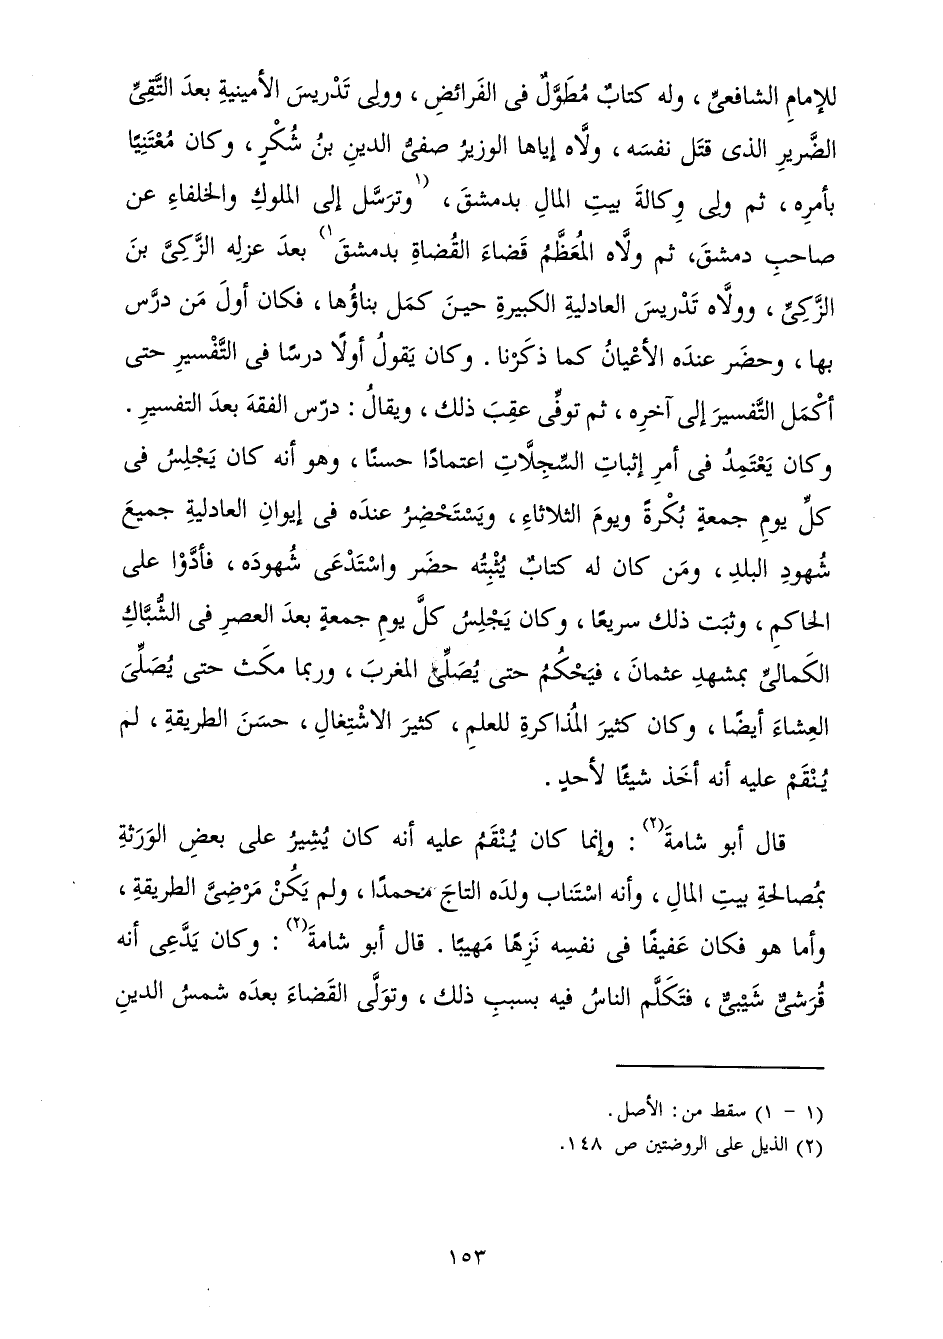 للإمامِ الشافعىِّ ، وله كتابٌ مُطَوَّلٌ فى الفَرائضِ ، وولِى تَدْريسَ الأمينيةِ بعدَ التَّقِىِّ
الضَّريرِ الذى قتَل نفسَه ، ولَّاه إياها الوزيرُ صفىُّ الدينِ بنُ شُكْرٍ ، وكان مُعْتَنِيًا
بأمرِه ، ثم ولِى وِكالةَ بيتِ المالِ بدمشقَ ، (١وترَسَّل إلى الملوكِ والخلفاءِ عن
صاحبِ دمشقَ، ثم ولَّاه المُعَظَّمُ قَضاءَ القُضاةِ بدمشقَ١) بعدَ عزلِه الزَّكِىَّ بنَ
الزَّكِىِّ ، وولَّاه تَدْريسَ العادليةِ الكبيرةِ حينَ كمَل بناؤُها ، فكان أولَ مَن درَّس
بها ، وحضَر عندَه الأعْيانُ كما ذكَرْنا . وكان يَقولُ أولًا درسًا فى التَّفْسيرِ حتى
أكْمَل التَّفسيرَ إلى آخرِه ، ثم توفِّى عقِبَ ذلك ، ويقالُ : درّس الفقهَ بعدَ التفسيرِ .
وكان يَعْتَمِدُ فى أمرِ إثباتِ السِّجِلَّاتِ اعتمادًا حسنًا ، وهو أنه كان يَجْلِسُ فى
كلِّ يومِ جمعةٍ بُكْرةً ويومَ الثلاثاءِ ، ويَسْتَحْضِرُ عندَه فى إيوانِ العادليةِ جميعَ
شُهودِ البلدِ ، ومَن كان له كتابٌ يُثْبِتُه حضَر واسْتَدْعَى شُهودَه ، فأدَّوْا على
الحاكمِ ، وثبَت ذلك سريعًا ، وكان يَجْلِسُ كلَّ يومِ جمعةٍ بعدَ العصرِ فى الشُّبَّاكِ
الكَمالىِّ بمشهدِ عثمانَ ، فيَحْكُمُ حتى يُصَلِّىَ المغربَ ، وربما مكَث حتى يُصَلِّىَ
العِشاءَ أيضًا ، وكان كثيرَ المُذاكرةِ للعلمِ ، كثيرَ الاشْتِغالِ ، حسَنَ الطريقةِ ، لم
يُنْقَمْ عليه أنه أخَذ شيئًا لأحدٍ .
قال أبو شامةَ(٢) : وإنما كان يُنْقَمُ عليه أنه كان يُشِيرُ على بعضِ الوَرَثةِ
بمُصالحةِ بيتِ المالِ ، وأنه اسْتَناب ولدَه التاجَ محمدًا ، ولم يَكُنْ مَرْضِىَّ الطريقةِ ،
وأما هو فكان عَفيفًا فى نفسِه نَزِهًا مَهيبًا . قال أبو شامةَ(٢) : وكان يَدَّعِى أنه
قُرَشىٌّ شَيْبىٌّ ، فتَكَلَّم الناسُ فيه بسببِ ذلك ، وتولَّى القَضاءَ بعدَه شمسُ الدينِ
(١ - ١) سقط من : الأصل .
(٢) الذيل على الروضتين ص ١٤٨.
١٥٣